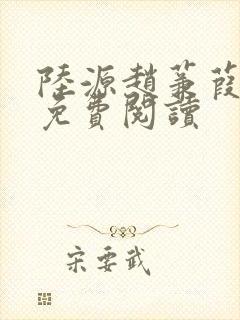 陸源趙蒹葭
免費閱讀
宋要武